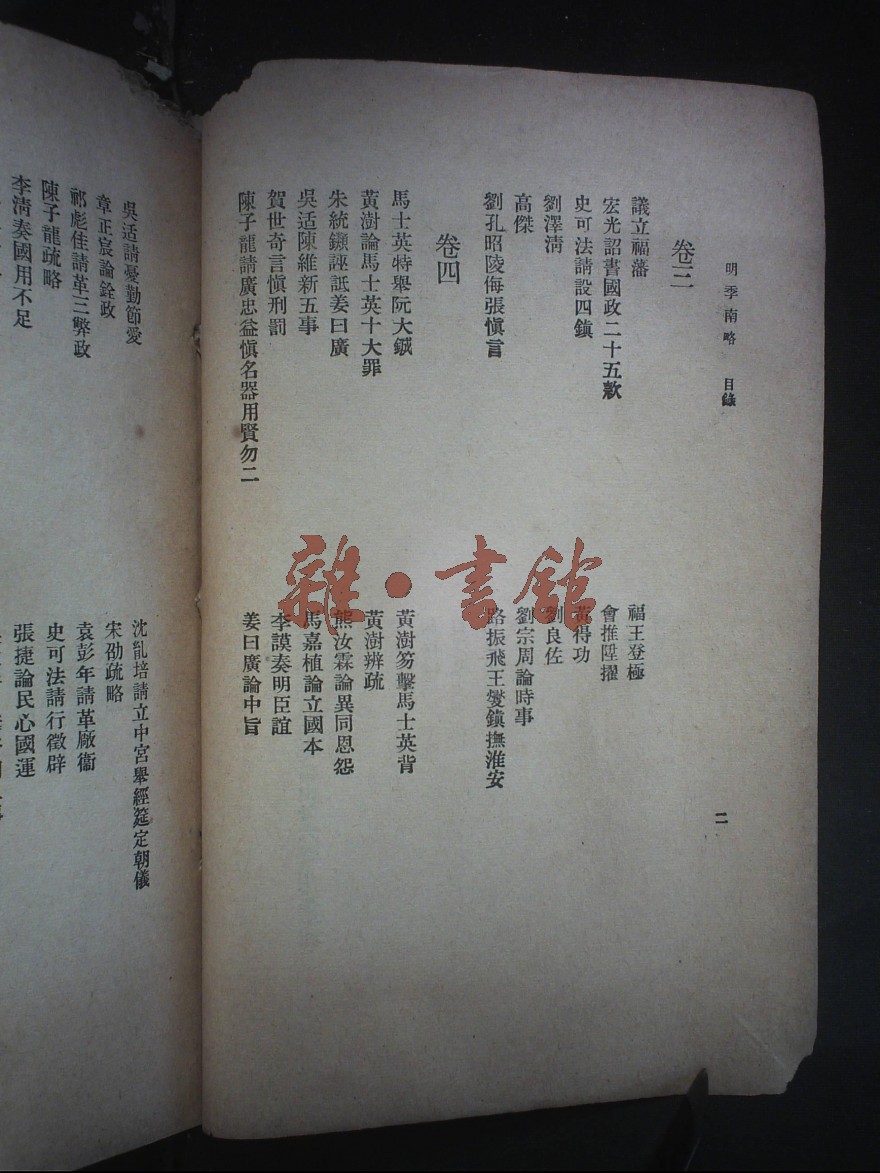 明季南略 目錄
二
卷三
議立福藩 福王登極
宏光詔書國政二十五款 會推陞擢
史可法請設四鎮 黃得功
劉澤清 劉良佐
高傑 劉宗周論時事
劉孔昭陵侮張愼言 路振飛王燮鎮撫淮安
卷四
馬士英特舉阮大鋮 黃澍笏擊馬士英背
黃澍論馬士英十大罪 黃澍辨疏
朱統𨰥誣詆姜曰廣 熊汝霖論異同恩怨
吳适陳維新五事 馬嘉植論立國本
賀世奇言愼刑罰 李謨奏明臣誼
陳子龍請廣忠益愼名器用賢勿二 姜曰廣論中旨
吳适請憂勤節愛 沈胤培請立中宮舉經筵定朝儀
章正宸論銓政 宋劼疏略
祁彪佳請革三弊政 袁彭年請革厰衞
陳子龍疏略 史可法請行徵辟
李清奏國用不足 張捷論民心國運
雜·書館